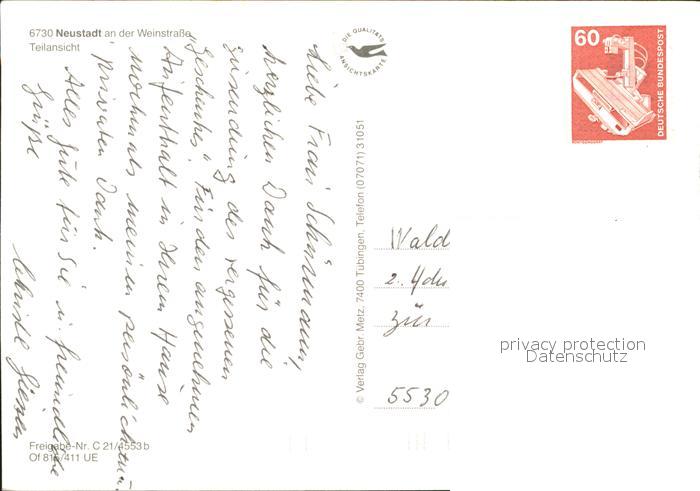 6730 Neustadt an der Weinstraße
Teilansicht
DIE QUALITÄTS
ANSICHTSKARTE
60
DEUTSCHE BUNDESPOST
Liebe Frau
herzlichen Dank für die
Zusendung des vergessenen
"Geschenkes". Für den angenehmen
Aufenthalt in Ihrem Hause
nochmals meinen persönlichen u.
privaten Dank.
Alles Gute für Sie u. freundliche
Grüße
© Verlag Gebr. Metz, 7400 Tübingen, Telefon (07071) 31051
Wald
zur
5530
privacy protection
Datenschutz
Freigabe-Nr. C 21/4553 b
Of 815/411 UE